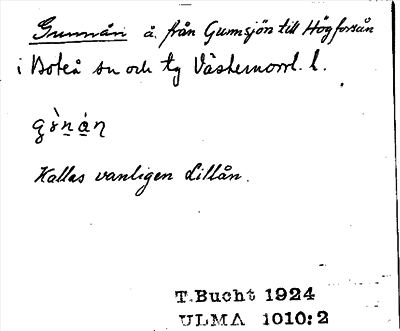 Gumnån å, från Gumsjön till Högforsån
i Boteå sn och tg Västernorrl. l.
gònán
Kallas vanligen Lillån.
T.Bucht 1924
ULMA 1010:2